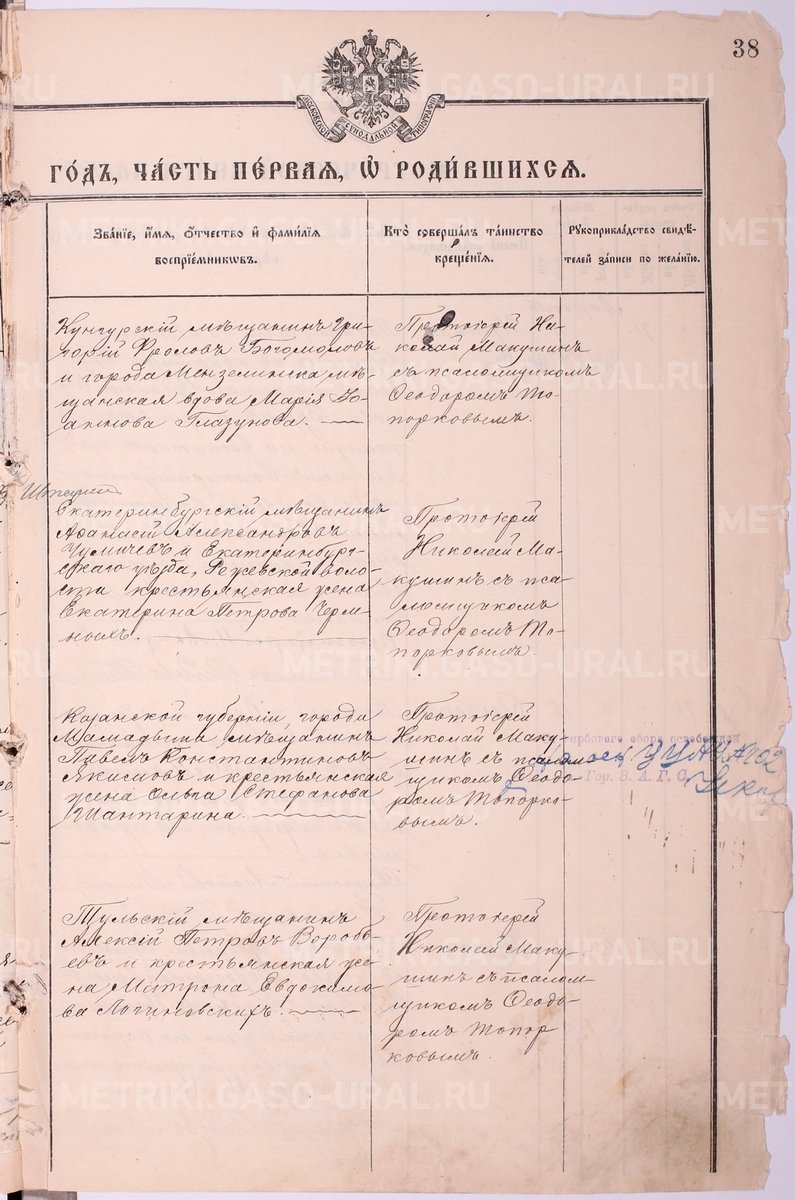 38
МОСКОВСКОЙ СѴНОДАЛЬНОЙ ТИПОГРАФІИ
ГО́ДЪ, ЧА́СТЬ ПЕ́РВАЯ, Ѡ҆ РОДИ́ВШИХСЯ.
Зва́нїе, и҆́мя, ѻ҆́тчество и҆ фами́лїя
воспрїе́мникѡвъ.
Кто̀ соверша́лъ та́инство
креще́нїя.
Рꙋкоприкла́дство свидѣ́-
телей за́писи по жела́нїю.
Кунгурскій мѣщанинъ Гри-
горій Фроловъ Богомоловъ
и города Мензелинска мѣ-
щанская вдова Марія Іо-
аннова Глазунова.
Протоіерей Ни-
колай Макушинъ
съ псаломщикомъ
Ѳеодоромъ То-
порковымъ.
Екатеринбургскій мѣщанинъ
Аѳанасій Александровъ
Чумичевъ и Екатеринбург-
скаго уѣзда, Режевской воло-
сти крестьянская жена
Екатерина Петрова Черм-
ныхъ.
Протоіерей
Николай Ма-
кушинъ съ пса-
ломщикомъ
Ѳеодоромъ То-
порковымъ.
Казанской губерніи города
Мамадыша мѣщанинъ
Павелъ Константиновъ
Якимовъ и крестьянская
жена Ольга Стефанова
Шантарина.
Протоіерей
Николай Маку-
шинъ съ псалом
щикомъ Ѳеодо-
ромъ Топорко-
вымъ.
гербового сбора
Гор. З. А. Г. С.
Тульскій мѣщанинъ
Алексій Петровъ Воробь-
евъ и крестьянская же-
на Матрона Евдокимо-
ва Логиновскихъ.
Протоіерей
Николай Маку-
шинъ съ псалом-
щикомъ Ѳеодо-
ромъ Топор
ковымъ.
METRIKI.GASO-URAL.RU